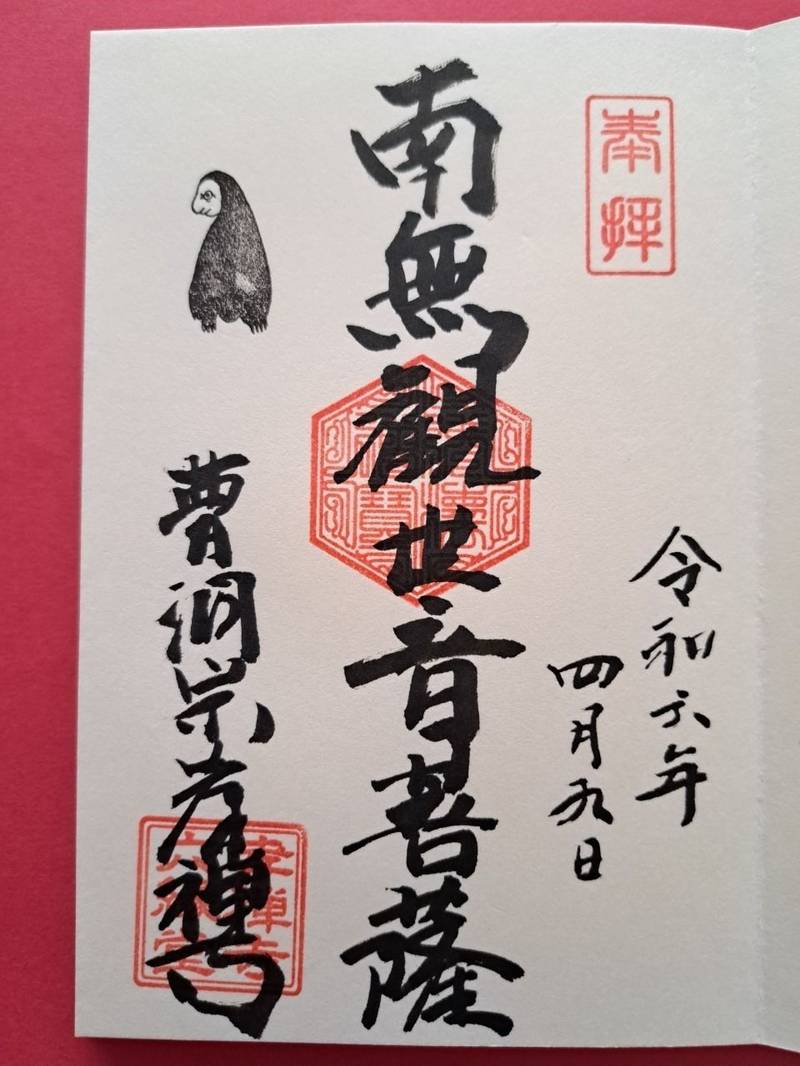 奉拝
令和六年
四月九日
南無觀世音菩薩
曹洞宗 禅寺